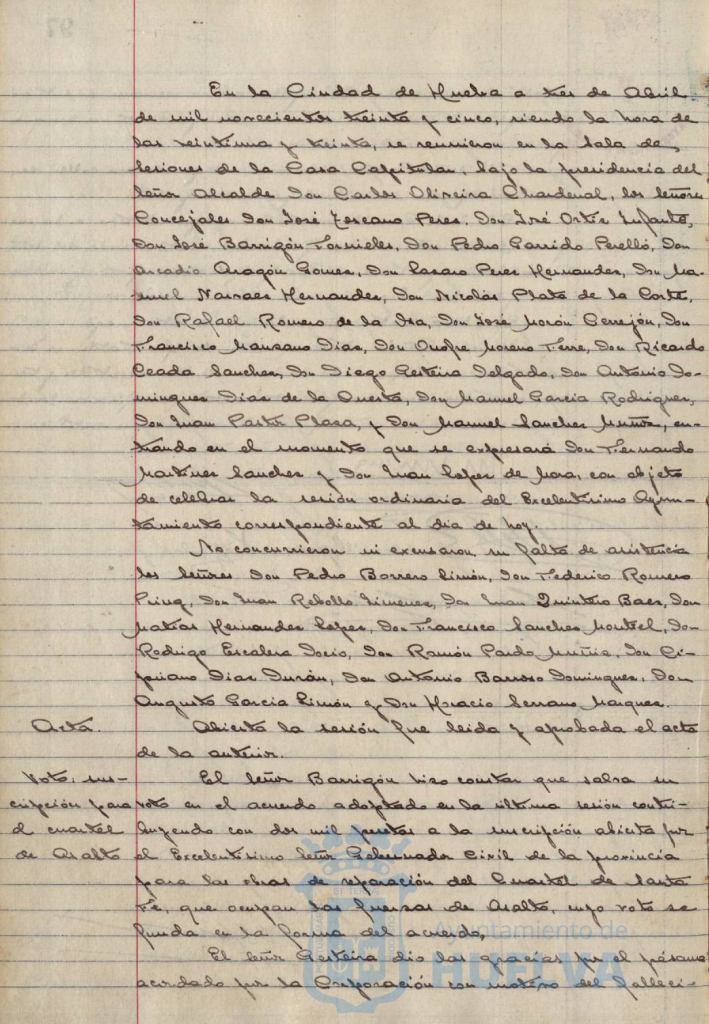 En la Ciudad de Huelva a tres de Abril
de mil novecientos treinta y cinco, siendo la hora de
las veintiuna y treinta, se reunieron en la Sala de
Sesiones de la Casa Capitular, bajo la presidencia del
Señor Alcalde Don Carlos Oliveira Chardenal, los Señores
Concejales Don José Toscano Peres, Don José Ortiz Infante,
Don José Barrigón Fornieles, Don Pedro Garrido Perelló, Don
Arcadio Aragón Gomes, Don Lazaro Peres Hernandes, Don Ma-
nuel Narvaes Hernandes, Don Nicolás Plata de la Corte,
Don Rafael Romero de la Isa, Don José Morón Cerrejón, Don
Francisco Manzano Dias, Don Onofre Moreno Ferre, Don Ricardo
Ceada Sanches, Don Diego Gesteira Delgado, Don Antonio Do-
mingues Dias de la Questa, Don Manuel Garcia Rodrigues,
Don Juan Pastor Plaza, y Don Manuel Sanches Muñiz, en-
trando en el momento que se expresará Don Fernando
Martines Sanches y Don Juan Lopes de Mora, con objeto
de celebrar la sesión ordinaria del Excelentisimo Ayun-
tamiento correspondiente al dia de hoy.
No concurrieron ni excusaron, su falta de asistencia
los Señores Don Pedro Borrero Limón, Don Federico Romero
Don Juan Rebollo Jimenes, Don Juan Quintero Baes, Don
Matias Hernandes Lopes, Don Francisco Sanches Montiel, Don
Rodrigo Escalera Socio, Don Ramón Pardo Muñiz, Don Ci-
priano Dias Durán, Don Antonio Barroso Domingues, Don
Augusto Garcia Limón y Don Horacio Serrano Marques.
Acta. Abierta la sesión fue leida y aprobada el acta
de la anterior.
Voto, sus- El Señor Barrigón hizo constar que salva su
cripción para voto en el acuerdo adoptado en la última sesión contri-
el cuartel buyendo con dos mil pesetas a la suscripción abierta por
de Asalto el Excelentisimo Señor Gobernador Civil de la provincia
para las obras de reparación del Cuartel de Santa
Fé, que ocupan las fuerzas de Asalto, cuyo voto se
funda en la forma del acuerdo.
El Señor Gesteira dio las gracias por el pésame
acordado por la Corporación con motivo del falleci-
Ayuntamiento de
HUELVA